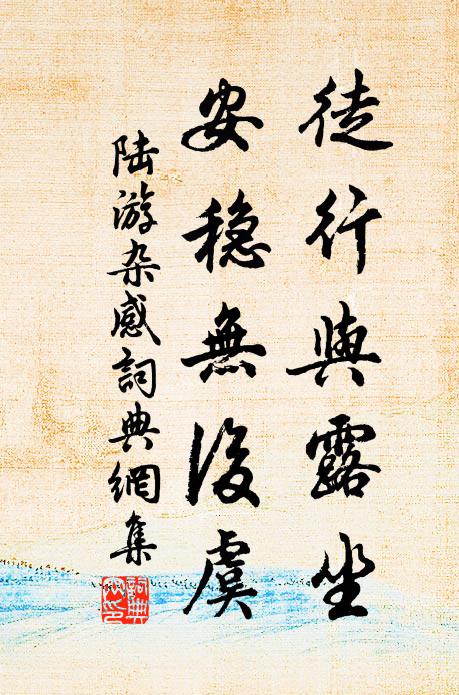 徒行與露坐
安穩無後虞
陆游杂感詞典網集
詞典